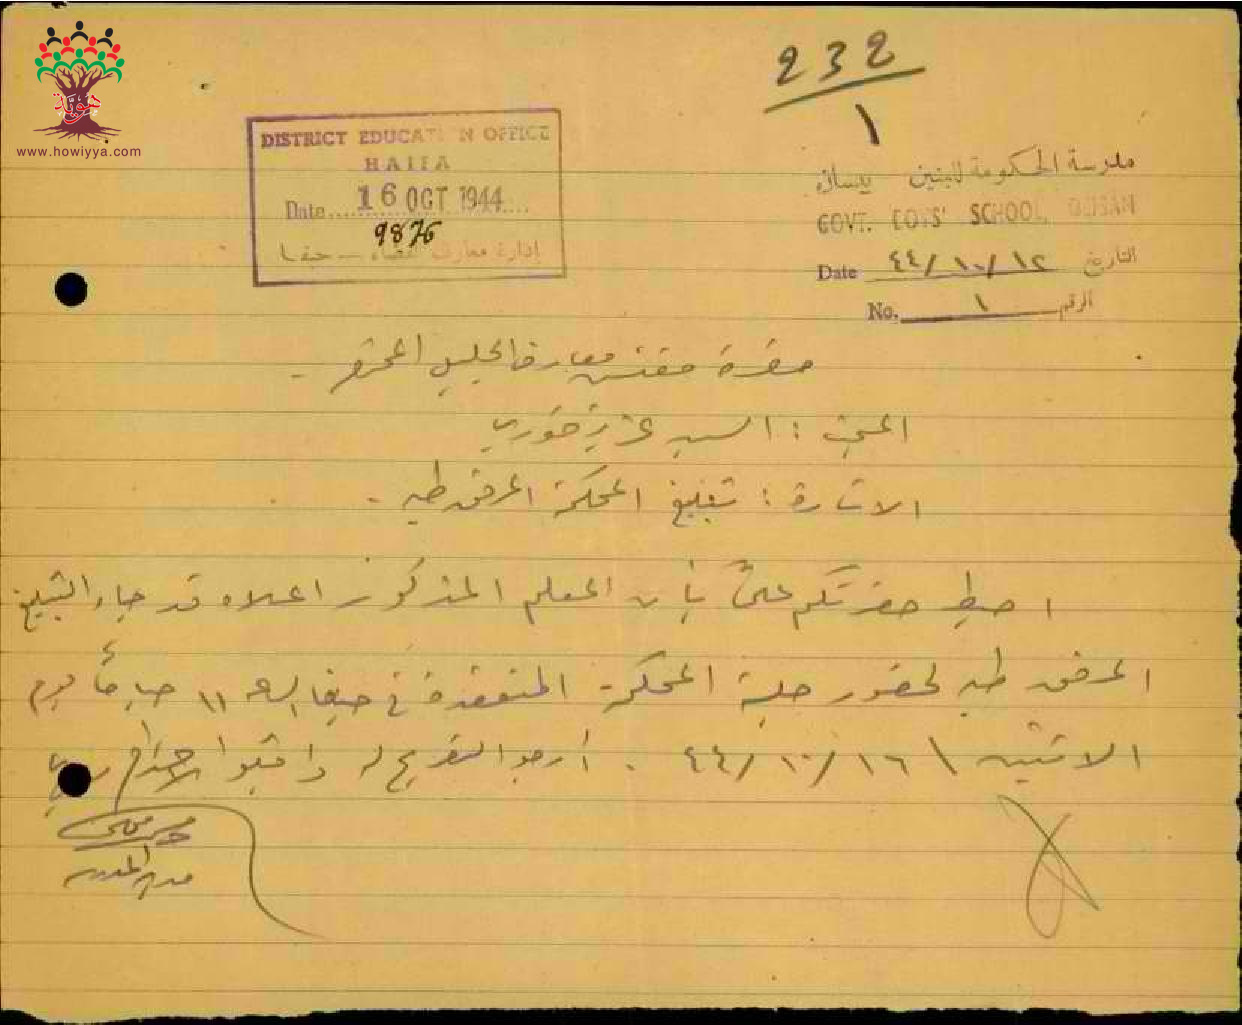 232
١
هوية
www.howiyya.com
DISTRICT EDUCATION OFFICE
HAIFA
Date 16 OCT 1944
9876
إدارة معارف القضاء – حيفا
مدرسة الحكومة للبنين بيسان
GOVT. BOYS' SCHOOL, BEISAN
Date ٤٤/١٠/١٢ التاريخ
No. ١ الرقم
حضرة مفتش معارف الجليل المحترم -
المبحث : السيد عزيز خوري
الاشارة : تبليغ المحكمة المرفق طيه -
احيط حضرتكم علماً بأن المعلم المذكور اعلاه قد جاءه التبليغ
المرفق طيه لحضور جلسة المحكمة المنعقدة في حيفا الساعة ١١ صباحاً يوم
الاثنين \ ٤٤/١٠/١٦ . أرجو التصريح له واقبلوا الاحترام سيدي
مدير المدرسة